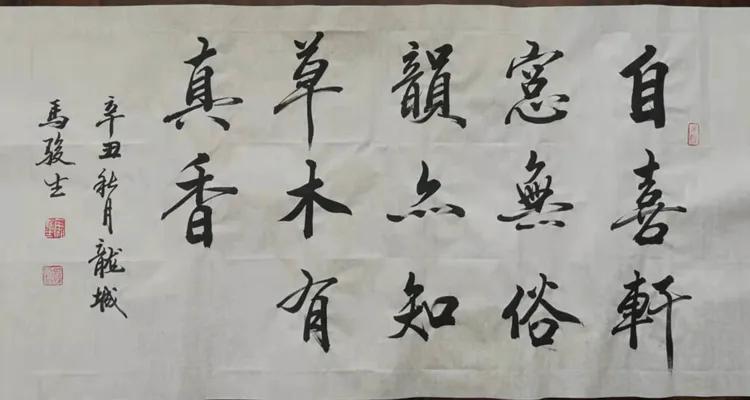 自喜軒
窓無俗
韻亦知
草木有
真香
辛丑秋月龍城
馬駿生